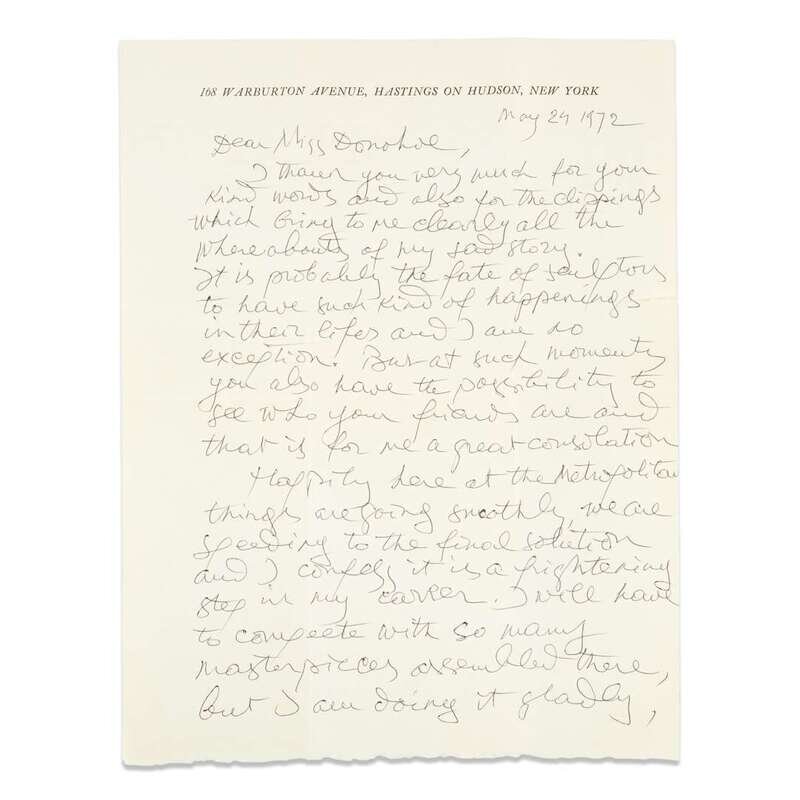 168 WARBURTON AVENUE, HASTINGS ON HUDSON, NEW YORK
May 24 1972
Dear Miss Donohoe,
I thank you very much for your
kind words and also for the clippings
which bring to me clearly all the
where abouts of my sad story.
It is probably the fate of sculptors
to have such kind of happenings
in their lifes and I am no
exception. But at such moments
you also have the possibility to
see who your friends are and
that is for me a great consolation
Happily here at the Metropolitan
things are going smoothly, we are
speeding to the final solution
and I confess it is a frightening
step in my career. I will have
to compete with so many
masterpieces assembled there,
but I am doing it gladly,